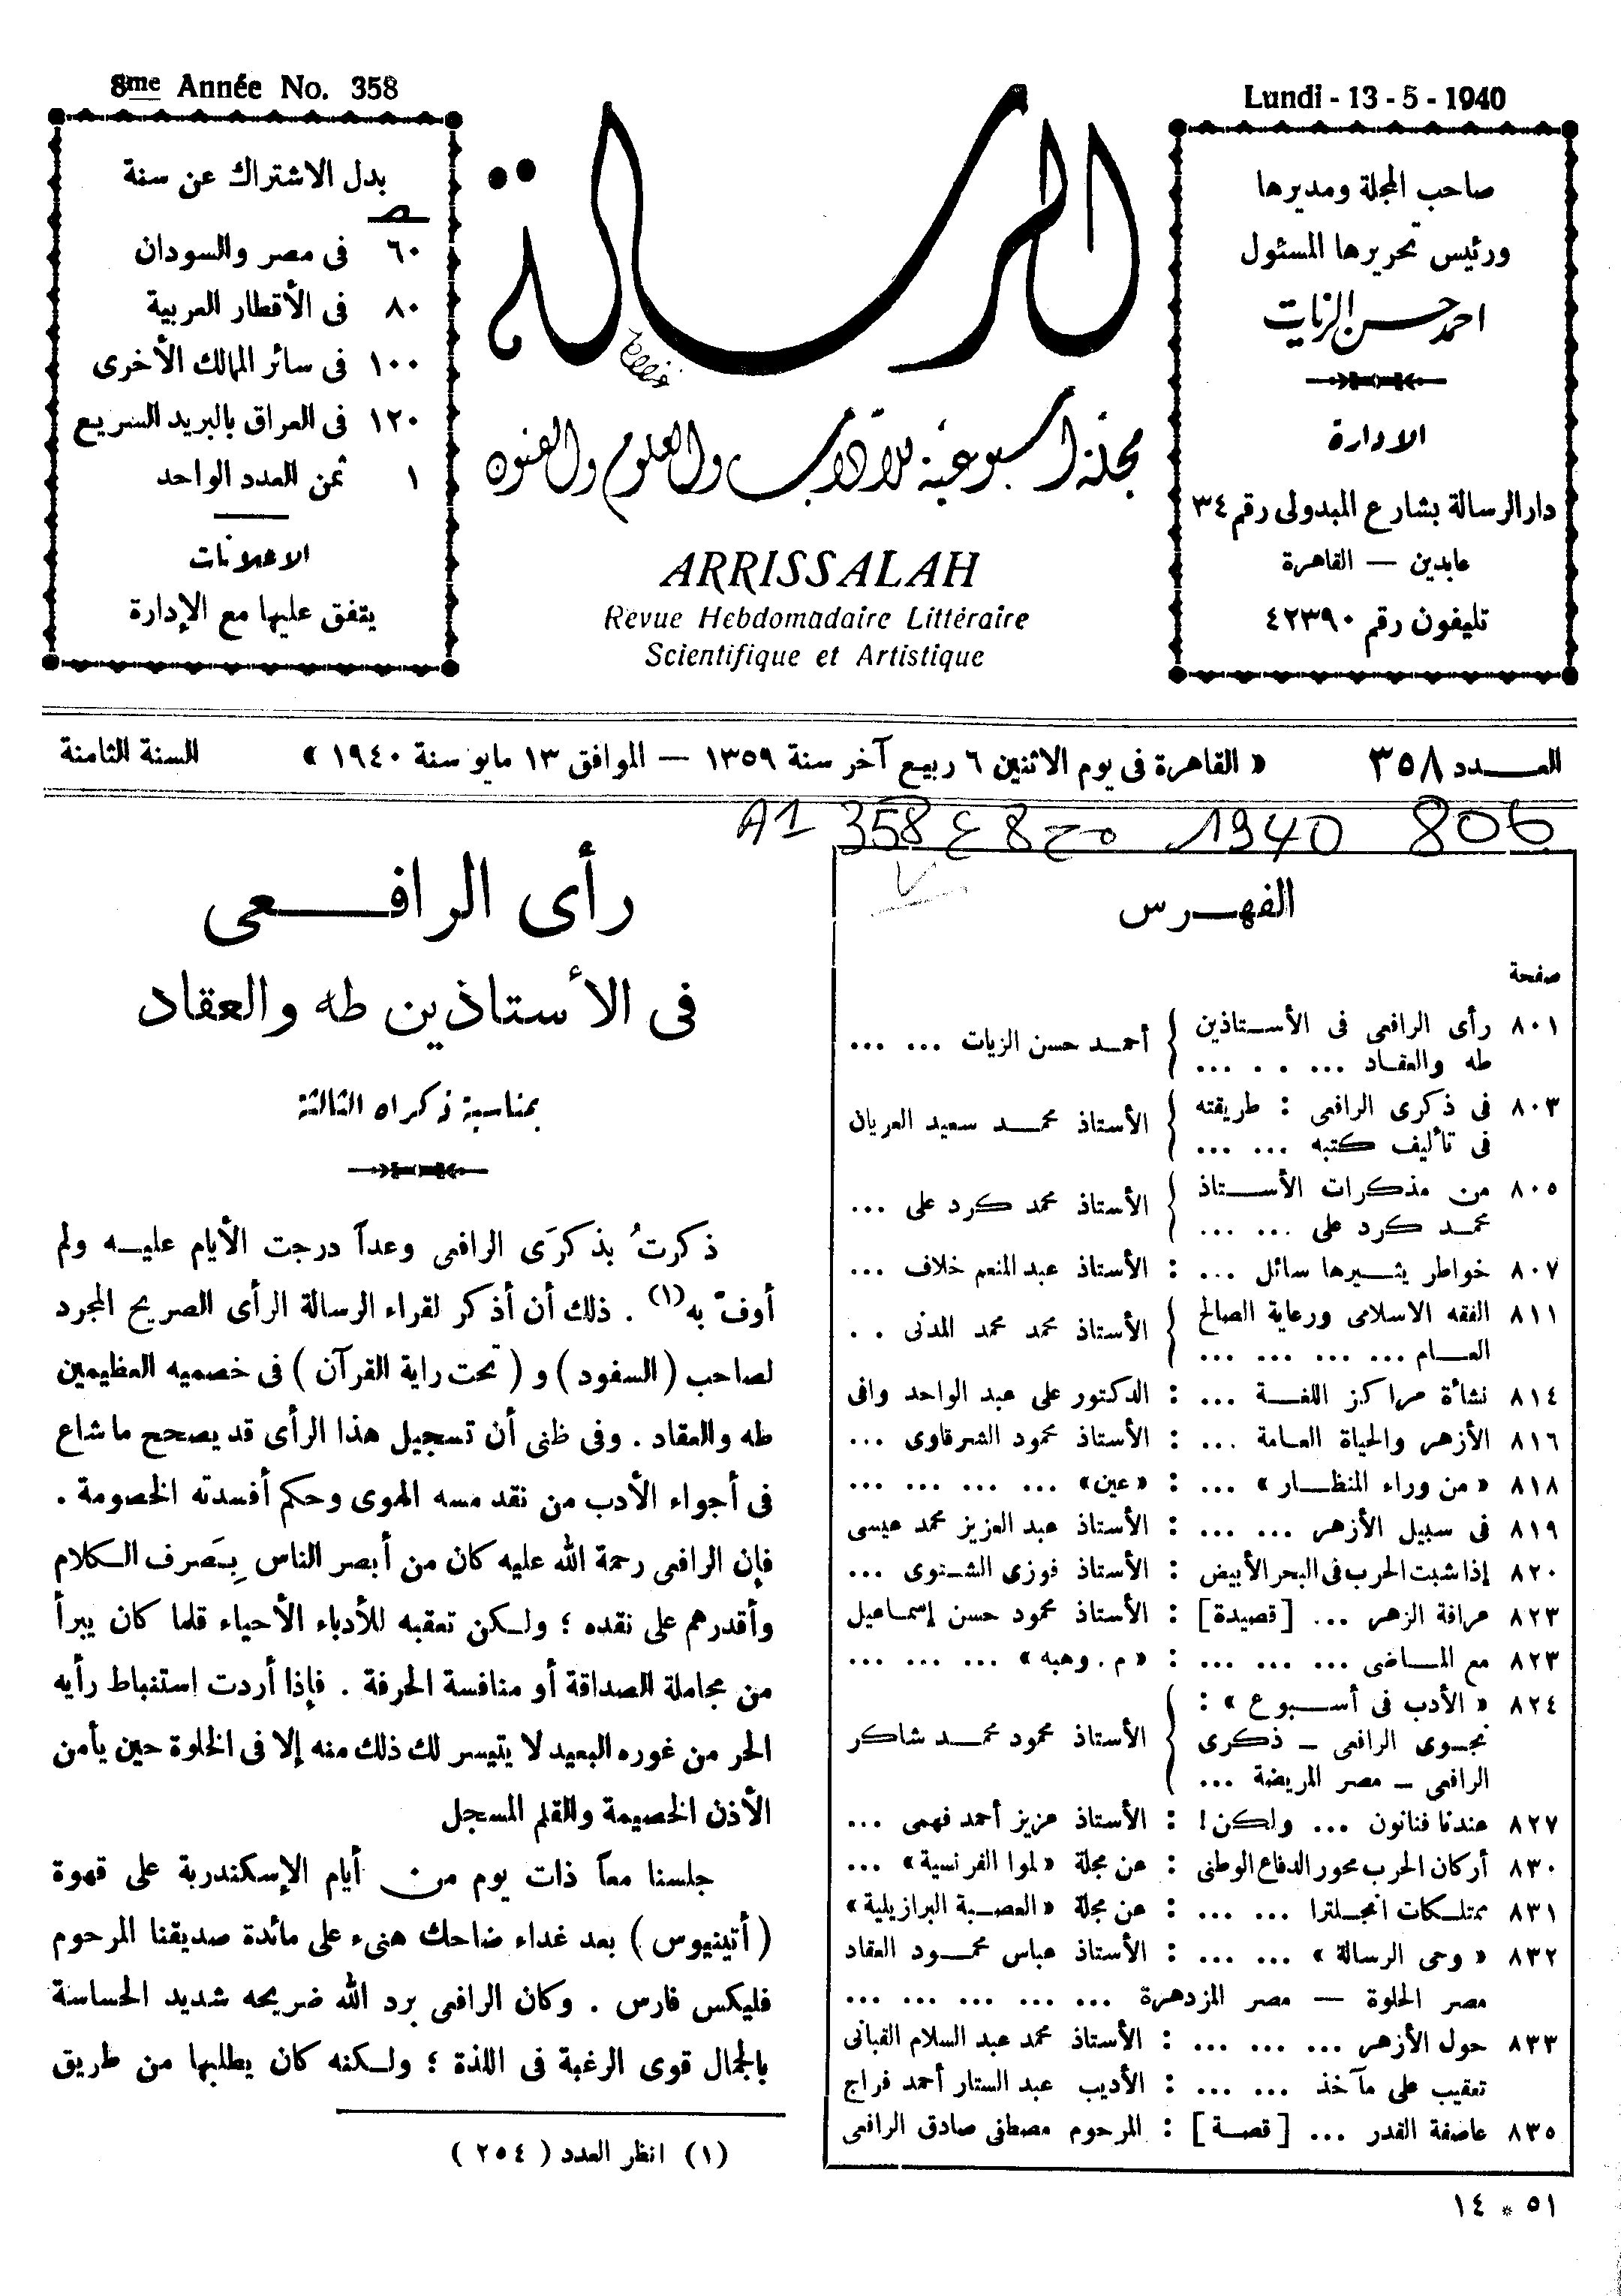 8me Année No. 358
Lundi - 13 - 5 - 1940
صاحب المجلة ومديرها
ورئيس تحريرها المسئول
احمد حسن الزيات
الادارة
دار الرسالة بشارع المبدولى رقم ٣٤
عابدين — القاهرة
تليفون رقم ٤٢٣٩٠
الرسالة
مجلة أسبوعية للآداب والعلوم والفنون
ARRISSALAH
Revue Hebdomadaire Littéraire
Scientifique et Artistique
بدل الاشتراك عن سنة
٦٠ فى مصر والسودان
٨٠ فى الأقطار العربية
١٠٠ فى سائر الممالك الأخرى
١٢٠ فى العراق بالبريد السريع
١ ثمن العدد الواحد
الاعلانات
يتفق عليها مع الإدارة
العـــدد ٣٥٨ « القاهرة فى يوم الاثنين ٦ ربيع آخر سنة ١٣٥٩ — الموافق ١٣ مايو سنة ١٩٤٠ » السنة الثامنة
A1 358 ع 8 1940 806
الفهـــرس
صفحة
٨٠١ رأى الرافعى فى الأستاذين طه والعقاد ... . . ... } أحمد حسن الزيات ... ...
٨٠٣ فى ذكرى الرافعى : طريقته فى تأليف كتبه ... ... } الأستاذ محمد سعيد العريان
٨٠٥ من مذكرات الأستاذ محمد كرد على ... ... } الأستاذ محمد كرد على ...
٨٠٧ خواطر يثيرها سائل ... : الأستاذ عبد المنعم خلاف ...
٨١١ الفقه الاسلامى ورعاية الصالح العام ... ... ... ... } الأستاذ محمد محمد المدنى . .
٨١٤ نشأة مراكز اللغة ... : الدكتور على عبد الواحد وافى
٨١٦ الأزهر والحياة العامة ... : الأستاذ محمود الشرقاوى ...
٨١٨ « من وراء المنظار » ... : «عين» ... ... ... ...
٨١٩ فى سبيل الأزهر ... ... : الأستاذ عبد العزيز محمد عيسى
٨٢٠ إذا شبت الحرب فى البحر الأبيض : الأستاذ فوزى الشتوى ...
٨٢٣ عرافة الزهر ... [قصيدة] : الأستاذ محمود حسن إسماعيل
٨٢٣ مع الماضى ... ... ... : « م . وهبه » ... ... ...
٨٢٤ « الأدب فى أسبوع » : نجوى الرافعى – ذكرى الرافعى – مصر المريضة ... } الأستاذ محمود محمد شاكر
٨٢٧ عندنا فنانون ... ولكن! : الأستاذ عزيز أحمد فهمى ...
٨٣٠ أركان الحرب محور الدفاع الوطنى : عن مجلة « لموا الفرنسية» ...
٨٣١ ممتلكات انجلترا ... ... : عن مجلة «العصبة البرازيلية»
٨٣٢ « وحى الرسالة » ... ... : الأستاذ عباس محمود العقاد
مصر الحلوة — مصر المزدهرة ... ... ... ... ...
٨٣٣ حول الأزهر ... ... ... : الأستاذ محمد عبد السلام القبانى
تعقيب على مآخذ ... ... : الأديب عبد الستار أحمد فراج
٨٣٥ عاصفة القدر ... [قصة] : المرحوم مصطفى صادق الرافعى
رأى الرافـــعى
فى الأستاذين طه والعقاد
بمناسبة ذكراه الثالثة
ذكرتُ بذكرَى الرافعى وعداً درجت الأيام عليه ولم
أوفّ به(١) . ذلك أن أذكر لقراء الرسالة الرأى الصريح المجرد
لصاحب (السفود) و (تحت راية القرآن) فى خصميه العظيمين
طه والعقاد . وفى ظنى أن تسجيل هذا الرأى قد يصحح ما شاع
فى أجواء الأدب من نقد مسه الهوى وحكم أفسدته الخصومة .
فإن الرافعى رحمة الله عليه كان من أبصر الناس بِصَرف الكلام
وأقدرهم على نقده ؛ ولكن تعقبه للأدباء الأحياء قلما كان يبرأ
من مجاملة الصداقة أو منافسة الحرفة . فإذا أردت استنباط رأيه
الحر من غوره البعيد لا يتيسر لك ذلك منه إلا فى الخلوة حين يأمن
الأذن الخصيمة والقلم المسجل
جلسنا معاً ذات يوم من أيام الإسكندرية على قهوة
(أتينيوس) بعد غداء ضاحك هنىء على مائدة صديقنا المرحوم
فليكس فارس . وكان الرافعى برد الله ضريحه شديد الحساسة
بالجمال قوى الرغبة فى اللذة ؛ ولكنه كان يطلبها من طريق
(١) انظر العدد ( ٢٥٤ )
٥١ * ١٤